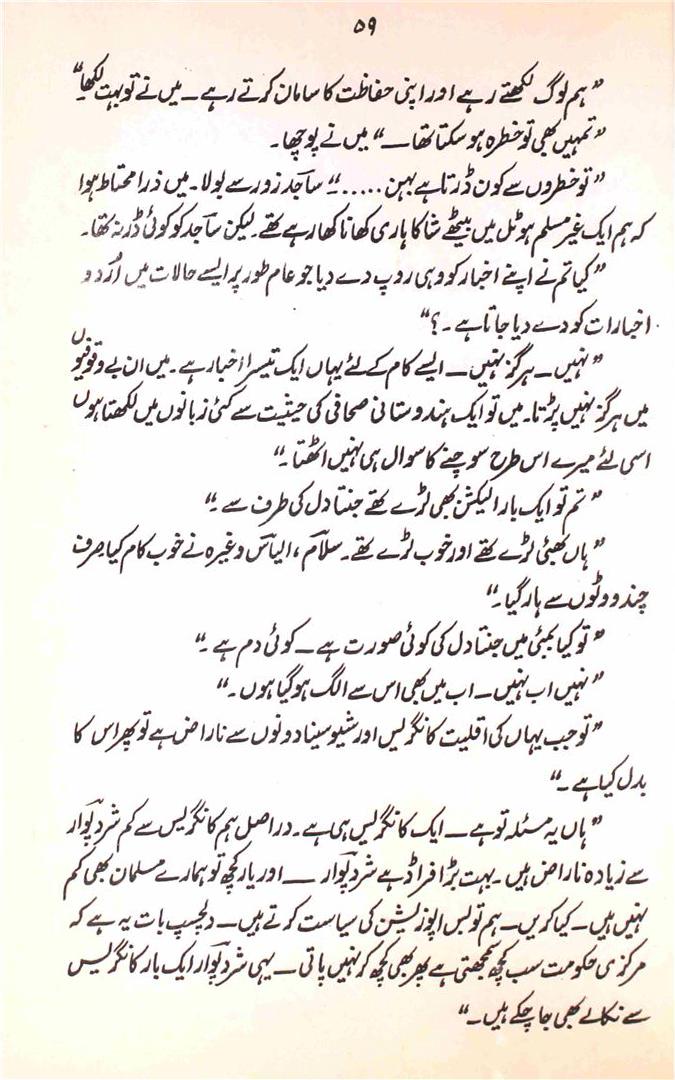 ۵۹
”ہم لوگ لکھتے رہے اور اپنی حفاظت کا سامان کرتے رہے ۔ میں نے تو بہت لکھا۔“
”تمہیں بھی تو خطرہ ہو سکتا تھا —“ میں نے پوچھا۔
”تو خطروں سے کون ڈرتا ہے بہن .....“ ساجد زور سے بولا۔ میں ذرا محتاط ہوا
کہ ہم ایک غیر مسلم ہوٹل میں بیٹھے شاکا ہاری کھانا کھا رہے تھے۔ لیکن ساجد کو کوئی ڈر نہ تھا۔
”کیا تم نے اپنے اخبار کو وہی روپ دے دیا جو عام طور پر ایسے حالات میں اُردو
اخبارات کو دے دیا جاتا ہے ۔؟“
”نہیں ۔ ہرگز نہیں — ایسے کام کے لئے یہاں ایک تیسرا اخبار ہے ۔ میں ان بے وقوفیوں
میں ہرگز نہیں پڑتا۔ میں تو ایک ہندوستانی صحافی کی حیثیت سے کئی زبانوں میں لکھتا ہوں
اسی لئے میرے اس طرح سوچنے کا سوال ہی نہیں اٹھتا ۔“
”تم تو ایک بار الیکشن بھی لڑے تھے جنتا دل کی طرف سے ۔“
”ہاں بھئی لڑے تھے اور خوب لڑے تھے۔ سلام ، الیاس وغیرہ نے خوب کام کیا۔ صرف
چند ووٹوں سے ہار گیا ۔“
”تو کیا بمبئی میں جنتا دل کی کوئی صورت ہے — کوئی دم ہے ۔“
”نہیں اب نہیں — اب میں بھی اس سے الگ ہو گیا ہوں ۔“
”تو جب یہاں کی اقلیت کانگریس اور شیو سینا دونوں سے ناراض ہے تو پھر اس کا
بدل کیا ہے ۔“
”ہاں یہ مسئلہ تو ہے — ایک کانگریس ہی ہے ۔ دراصل ہم کانگریس سے کم شرد پوار
سے زیادہ ناراض ہیں ۔ بہت بڑا فراڈ ہے شرد پوار — اور یار کچھ تو ہمارے مسلمان بھی کم
نہیں ہیں ۔ کیا کریں — ہم تو بس اپوزیشن کی سیاست کرتے ہیں — دلچسپ بات یہ ہے کہ
مرکزی حکومت سب کچھ سمجھتی ہے پھر بھی کچھ کر نہیں پاتی — یہی شرد پوار ایک بار کانگریس
سے نکالے بھی جا چکے ہیں ۔“